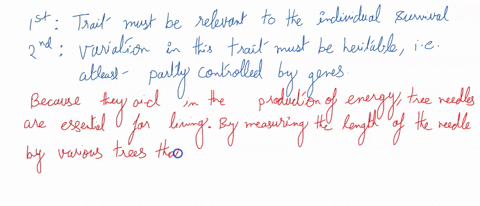 1st: Trait must be relevant to the individual survival
2nd: Variation in this trait must be heritable, i.e.
atleast partly controlled by genes.
Because they aid in the production of energy, tree needles
are essential for living. By measuring the length of the needle
by various trees tha